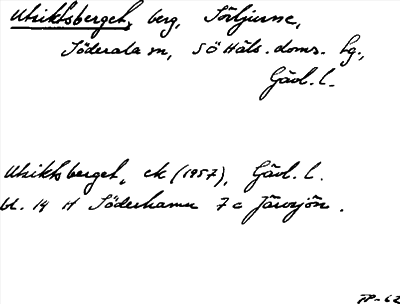 Utriksberget, berg, Sörljusne,
Söderala sn, SÖ Häls. doms. tg.,
Gävl. l.
Utriksberget, ek (1957), Gävl. l.
bl. 14 H Söderhamn 7 c Järvsjön.